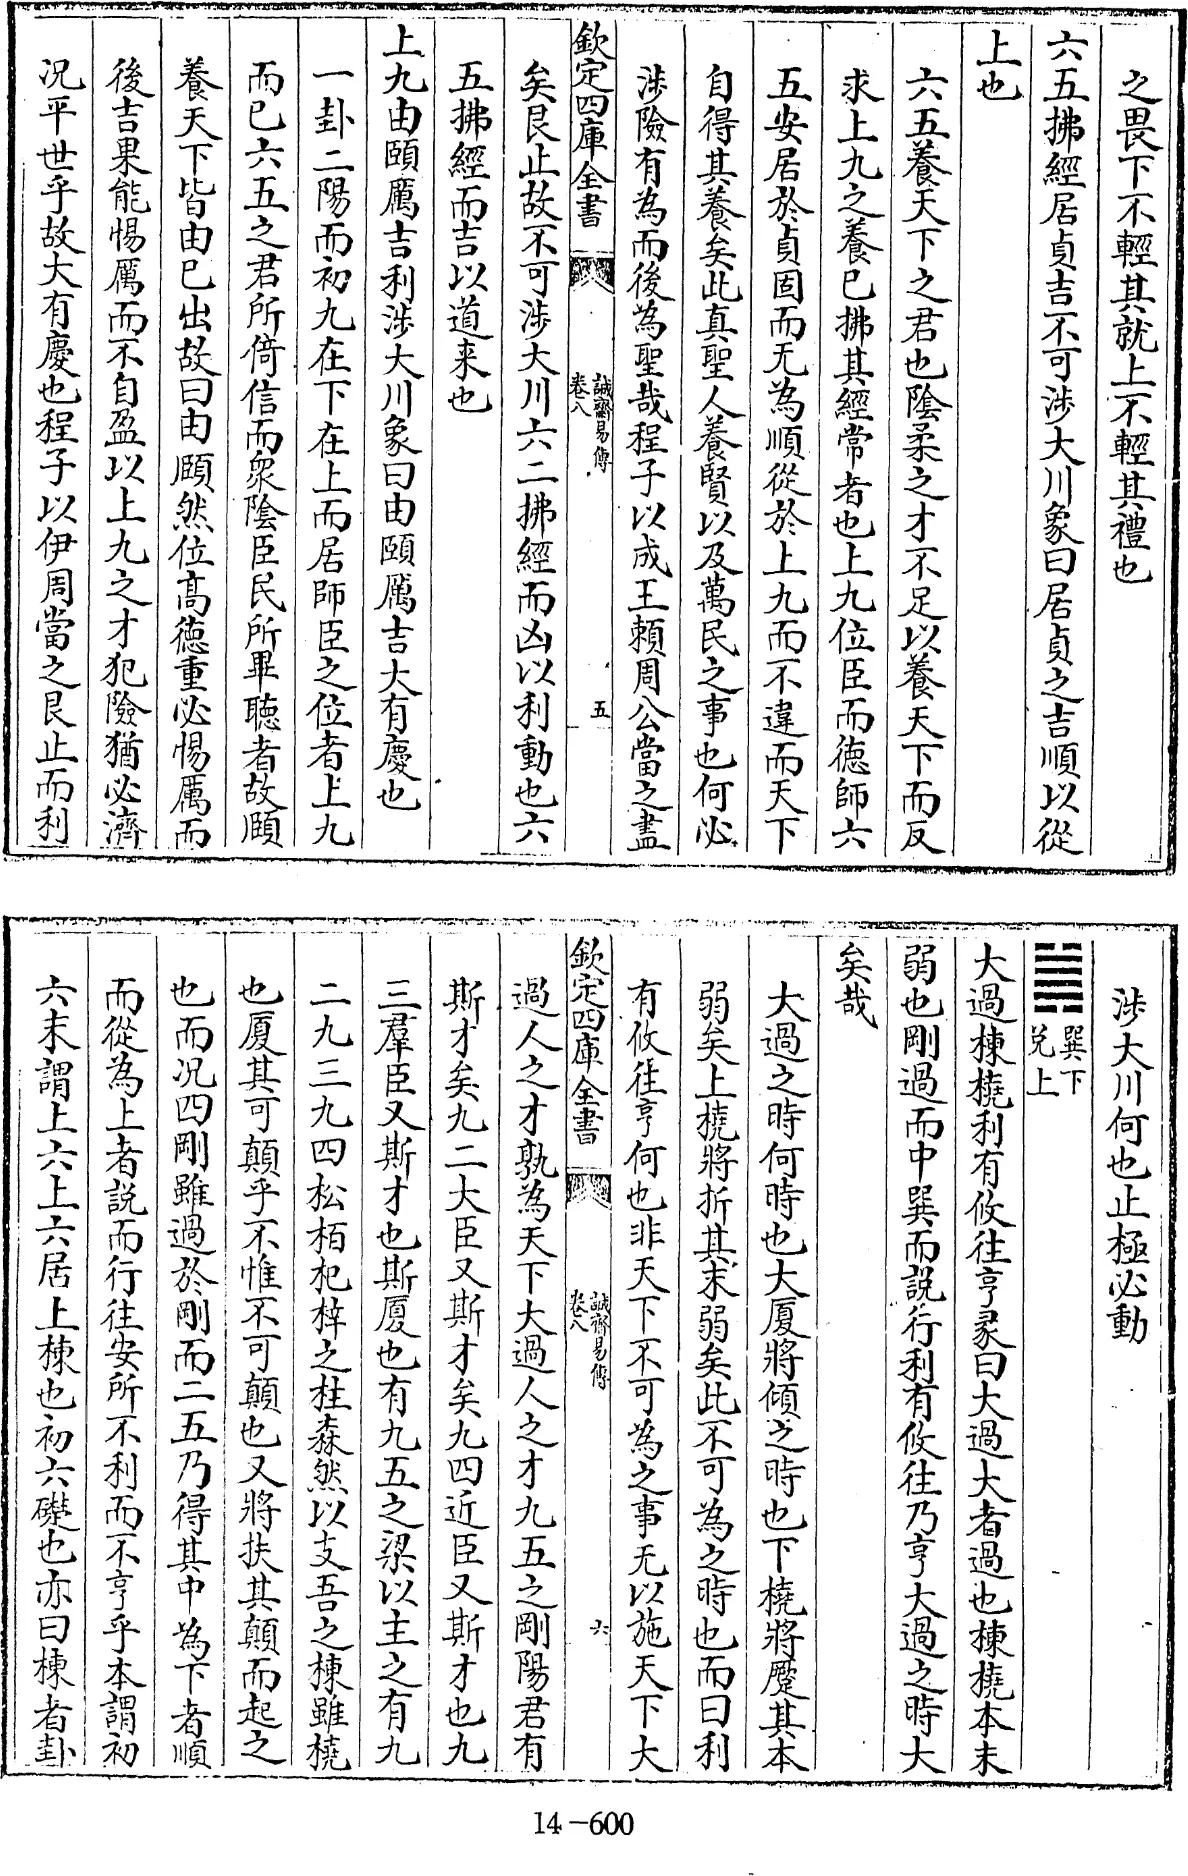 之畏下不輕其就上不輕其禮也
六五拂經居貞吉不可涉大川象曰居貞之吉順以從
上也
六五養天下之君也陰柔之才不足以養天下而反
求上九之養已拂其經常者也上九位臣而德師六
五安居於貞固而无為順從於上九而不違而天下
自得其養矣此真聖人養賢以及萬民之事也何必
涉險有為而後為聖哉程子以成王賴周公當之盡
欽定四庫全書
誠齋易傳
卷八
五
矣艮止故不可涉大川六二拂經而凶以利動也六
五拂經而吉以道來也
上九由頤厲吉利涉大川象曰由頤厲吉大有慶也
一卦二陽而初九在下在上而居師臣之位者上九
而已六五之君所倚信而衆陰臣民所畢聽者故頤
養天下皆由已出故曰由頤然位髙德重必惕厲而
後吉果能惕厲而不自盈以上九之才犯險猶必濟
况平世乎故大有慶也程子以伊周當之艮止而利
涉大川何也止極必動
巽下
兌上
大過棟橈利有攸往亨彖曰大過大者過也棟橈本末
弱也剛過而中巽而說行利有攸往乃亨大過之時大
矣哉
大過之時何時也大厦將傾之時也下橈將蹷其本
弱矣上橈將折其末弱矣此不可為之時也而曰利
有攸往亨何也非天下不可為之事无以施天下大
欽定四庫全書
誠齋易傳
卷八
六
過人之才孰為天下大過人之才九五之剛陽君有
斯才矣九二大臣又斯才矣九四近臣又斯才也九
三羣臣又斯才也斯厦也有九五之梁以主之有九
二九三九四松栢杞梓之柱森然以支吾之棟雖橈
也厦其可顛乎不惟不可顛也又將扶其顛而起之
也而况四剛雖過於剛而二五乃得其中為下者順
而從為上者說而行往安所不利而不亨乎本謂初
六末謂上六上六居上棟也初六礎也亦曰棟者卦
14-600